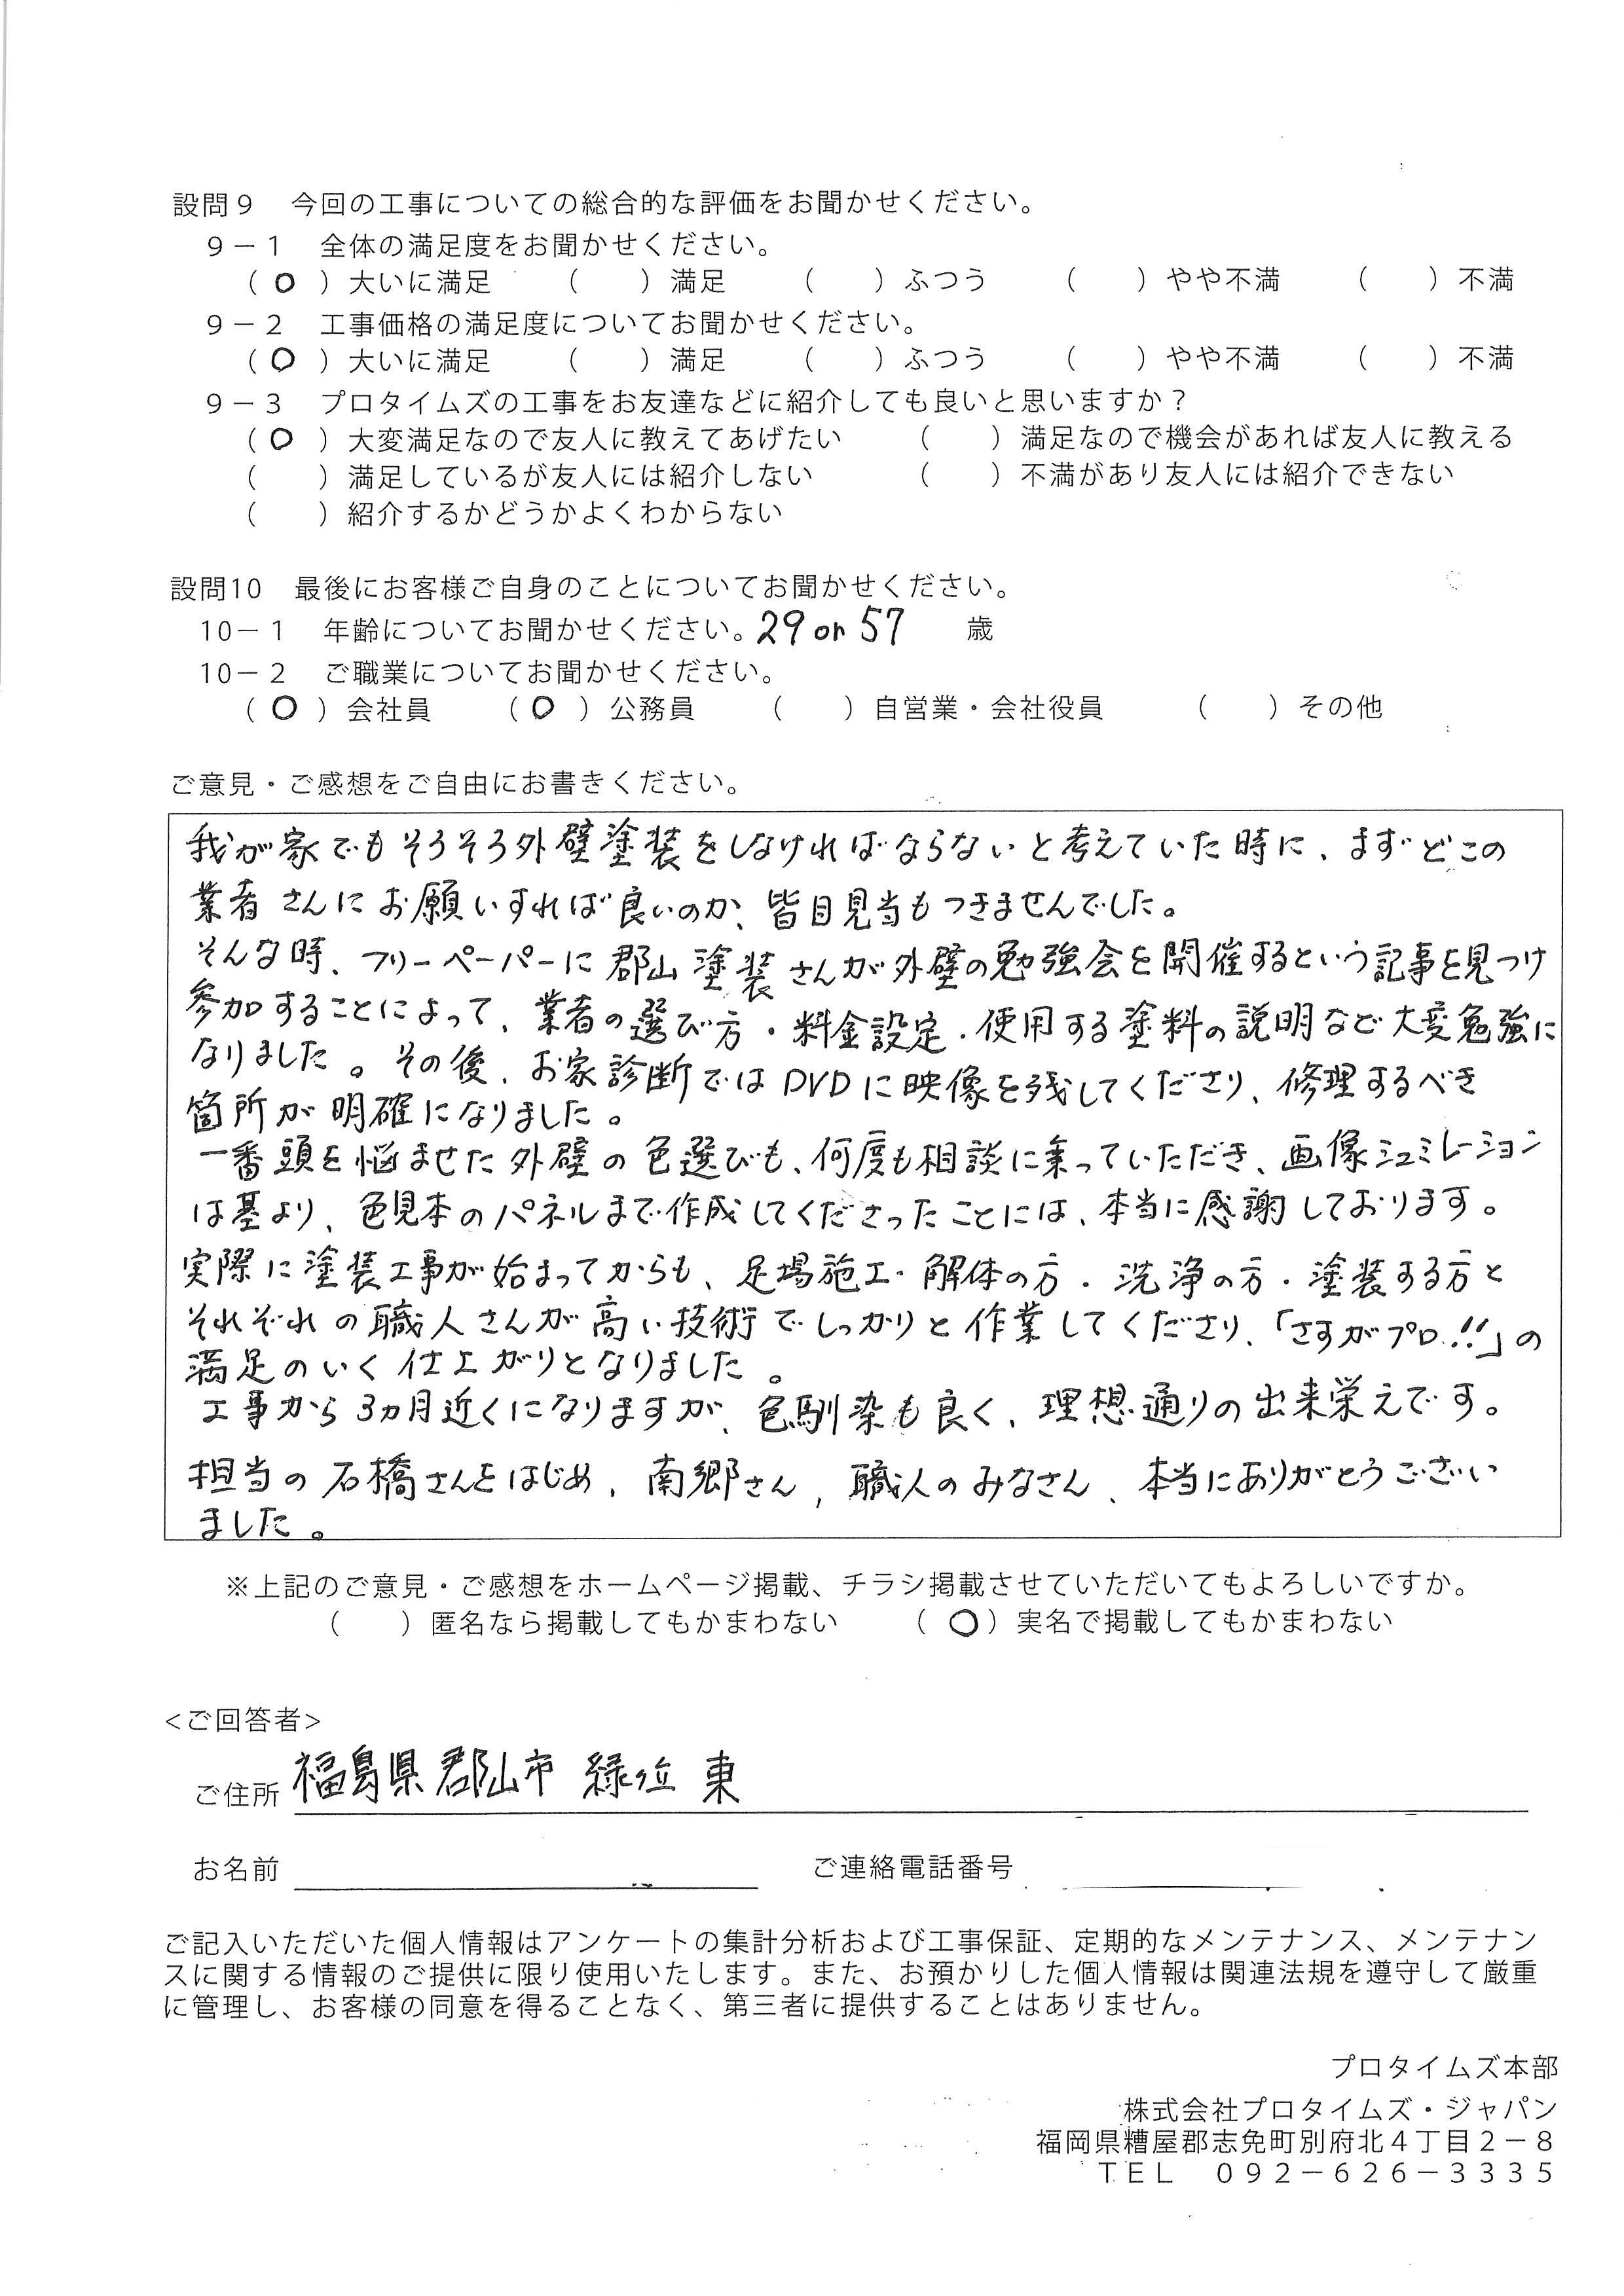 設問９　今回の工事についての総合的な評価をお聞かせください。
９－１　全体の満足度をお聞かせください。
（ ○ ）大いに満足　（　）満足　（　）ふつう　（　）やや不満　（　）不満
９－２　工事価格の満足度についてお聞かせください。
（ ○ ）大いに満足　（　）満足　（　）ふつう　（　）やや不満　（　）不満
９－３　プロタイムズの工事をお友達などに紹介しても良いと思いますか？
（ ○ ）大変満足なので友人に教えてあげたい　（　）満足なので機会があれば友人に教える
（　）満足しているが友人には紹介しない　（　）不満があり友人には紹介できない
（　）紹介するかどうかよくわからない
設問10　最後にお客様ご自身のことについてお聞かせください。
10－１　年齢についてお聞かせください。29 or 57　歳
10－２　ご職業についてお聞かせください。
（ ○ ）会社員　（ ○ ）公務員　（　）自営業・会社役員　（　）その他
ご意見・ご感想をご自由にお書きください。
我が家でもそろそろ外壁塗装をしなければならないと考えていた時に、まずどこの
業者さんにお願いすれば良いのか、皆目見当もつきませんでした。
そんな時、フリーペーパーに郡山塗装さんが外壁の勉強会を開催するという記事を見つけ
参加することによって、業者の選び方・料金設定・使用する塗料の説明など大変勉強に
なりました。その後、お家診断ではDVDに映像を残してくださり、修理するべき
箇所が明確になりました。
一番頭を悩ませた外壁の色選びも、何度も相談に乗っていただき、画像シュミレーション
は基より、色見本のパネルまで作成してくださったことには、本当に感謝しております。
実際に塗装工事が始まってからも、足場施工・解体の方・洗浄の方・塗装する方と
それぞれの職人さんが高い技術でしっかりと作業してくださり、「さすがプロ!!」の
満足のいく仕上がりとなりました。
工事から3ヵ月近くになりますが、色馴染も良く、理想通りの出来栄えです。
担当の石橋さんをはじめ、南郷さん、職人のみなさん、本当にありがとうござい
ました。
※上記のご意見・ご感想をホームページ掲載、チラシ掲載させていただいてもよろしいですか。
（　）匿名なら掲載してもかまわない　（ ○ ）実名で掲載してもかまわない
<ご回答者>
ご住所　福島県郡山市 緑ヶ丘 東
お名前　ご連絡電話番号
ご記入いただいた個人情報はアンケートの集計分析および工事保証、定期的なメンテナンス、メンテナン
スに関する情報のご提供に限り使用いたします。また、お預かりした個人情報は関連法規を遵守して厳重
に管理し、お客様の同意を得ることなく、第三者に提供することはありません。
プロタイムズ本部
株式会社プロタイムズ・ジャパン
福岡県糟屋郡志免町別府北４丁目２－８
ＴＥＬ　０９２－６２６－３３３５